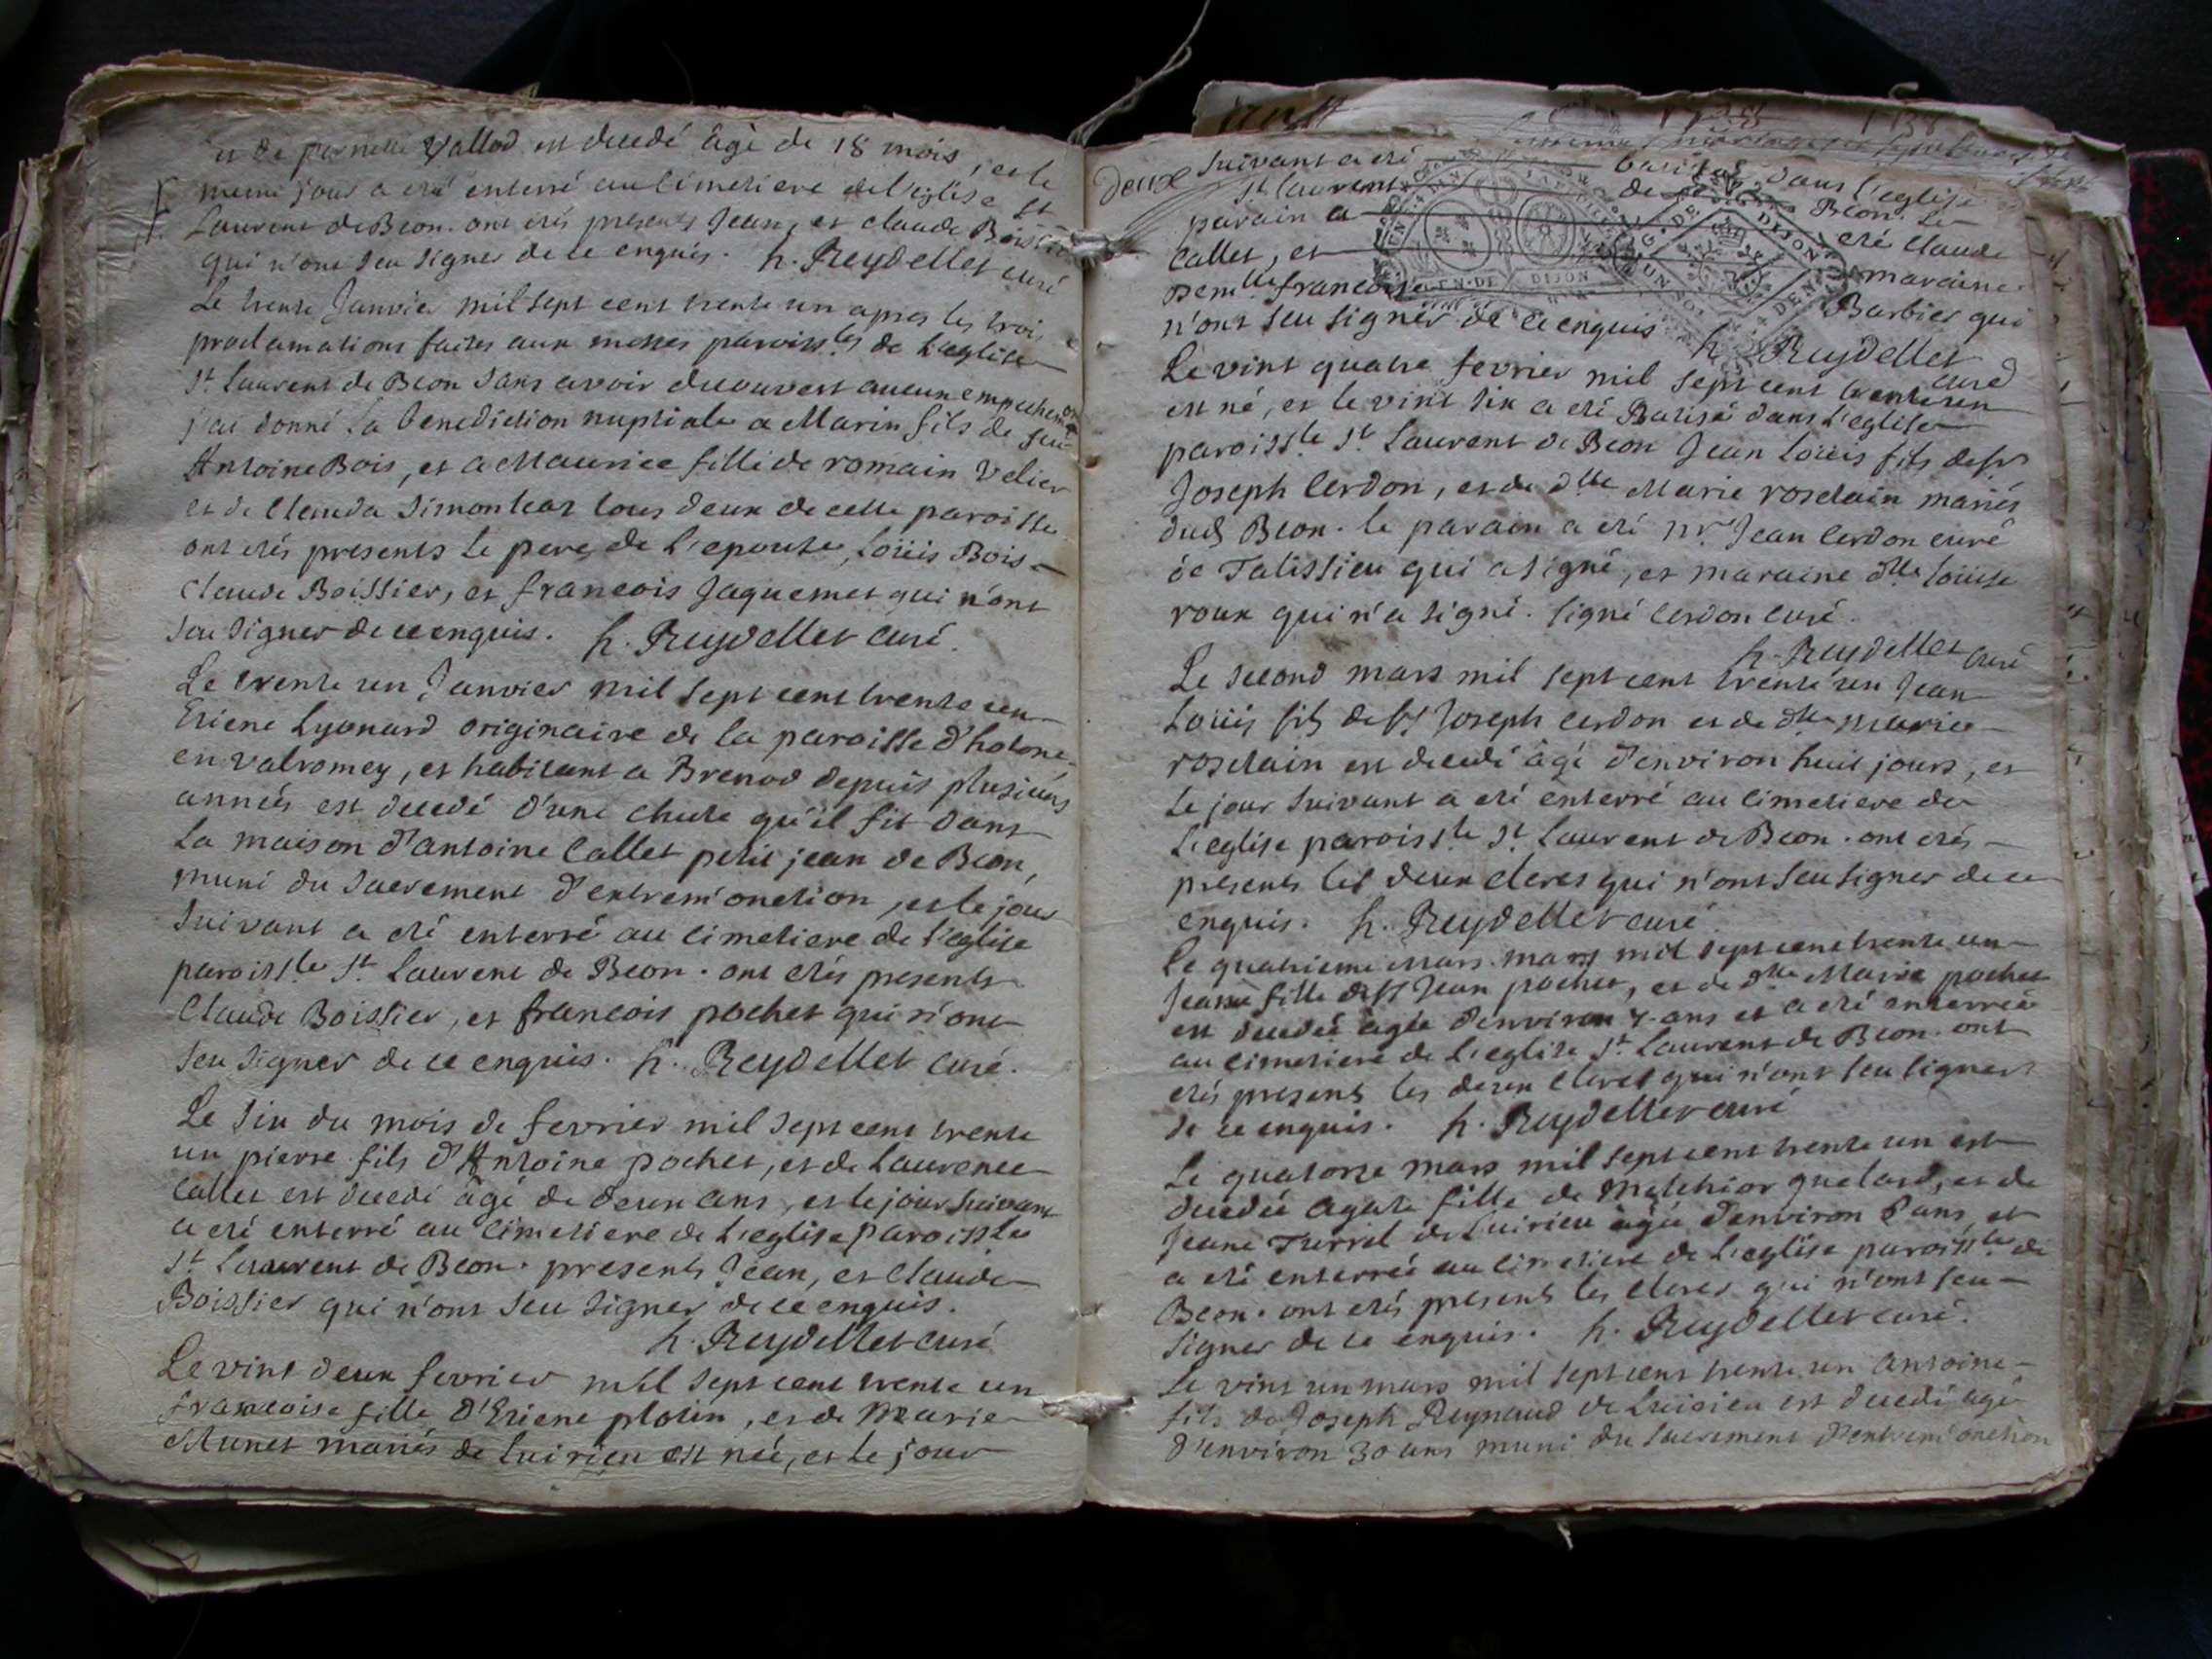 et de pernette Vallod est decedé âgé de 18 mois, et le
meme jour a eté enterré au cimetiere de l'eglise St
Laurent de Beon. ont etés presents Jean, et claude Boissier
qui n'ont seu signer de ce enquis. h. Reydellet curé
Le trente Janvier mil sept cent trente un apres les trois
proclamations faites aux messes paroissles de L'eglise
St Laurent de Beon sans avoir decouvert aucun empechement
j'ai donné la benediction nuptiale a Marin fils de feu
Antoine Bois, et a Maurice fille de romain Velier
et de Clauda Simon tous deux de cette paroisse
ont etés presents le pere de L'epouse, Loüis Bois
Claude Boissier, et francois Jaquemet qui n'ont
seu signer de ce enquis. h. Reydellet curé.
Le trente un Janvier mil sept cent trente un
Etiene Lyonard originaire de la paroisse d'hotone
en valromey, et habitant a Brenod depuis plusieurs
années est decedé d'une chute qu'il fit dans
La maison d'antoine Callet petit jean de Beon,
muni du sacrement d'extrem'onction, et le jour
suivant a eté enterré au cimetiere de l'eglise
paroissle St Laurent de Beon. ont etés presents
Claude Boissier, et francois pochet qui n'ont
seu signer de ce enquis. h. Reydellet curé.
Le six du mois de fevrier mil sept cent trente
un pierre fils d'Antoine pochet, et de Laurence
Callet est decedé âgé de deux ans, et le jour suivant
a eté enterré au cimetiere de L'eglise paroissle
St Laurent de Beon. presents Jean, et Claude
Boissier qui n'ont seu signer de ce enquis.
h. Reydellet curé
Le vint deux fevrier mil sept cent trente un
francoise fille d'Etiene plotin, et de Marie
Munet mariés de Luirieu est née, et le jour
deuxe
suivant a eté batisée dans l'eglise
St laurent de Beon. Le
parain a eté Claude
Callet, et maraine
Demlle francoise Barbier qui
n'ont seu signer de ce enquis h. Reydellet
curé
GEN. DE DIJON
Le vint quatre fevrier mil sept cent trente un
est né, et le vint six a eté Batisé dans L'eglise
paroissle St Laurent de Beon Jean Loüis fils de Sr
Joseph Cerdon, et de dlle Marie roselain mariés
dud Beon. le parain a eté Mr Jean Cerdon curé
de Talissieu qui a signé, et maraine dlle Loüise
roux qui n'a signé. signé Cerdon curé.
h. Reydellet curé
Le second mars mil sept cent trente un Jean
Loüis fils de Sr Joseph cerdon et de dlle marie
roselain est decedé âgé d'environ huit jours, et
Le jour suivant a eté enterré au cimetiere de
L'eglise paroissle St Laurent de Beon. ont etés
presents les deux clercs qui n'ont seu signer de ce
enquis. h. Reydellet curé
Le quatrieme mars mil sept cent trente un
Jeane fille de Sr Jean pochet, et de dlle Marie pochet
est decedée agée d'environ 7 ans et a eté enterrée
au cimetiere de L'eglise St Laurent de Beon. ont
etés presents les deux clercs qui n'ont seu signer
de ce enquis. h. Reydellet curé
Le quatorze mars mil sept cent trente un est
decedée agate fille de Melchior guelard, et de
Jeane Turrel de Luirieu agée d'environ ans, et
a eté enterrée au cimetiere de L'eglise paroissle de
Beon. ont etés presents les clercs qui n'ont seu
signer de ce enquis. h. Reydellet curé.
Le vint un mars mil sept cent trente un antoine
fils de Joseph Reynaud de Luirieu est decedé agé
d'environ 30 ans muni du sacrement d'extrem'onction